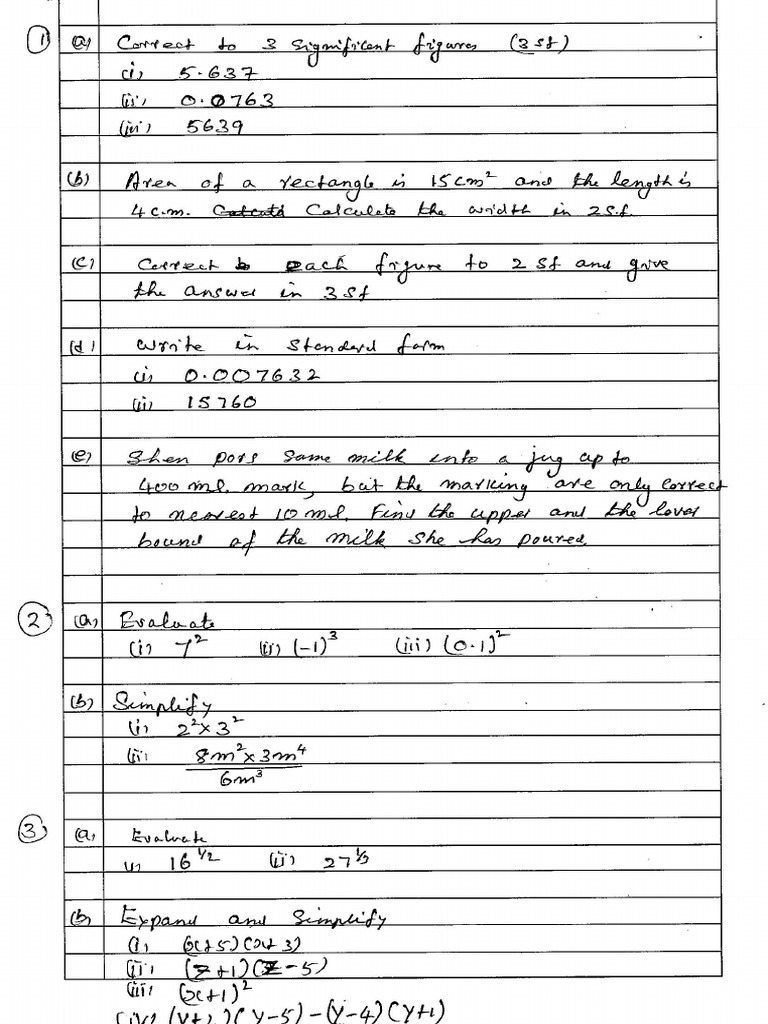 1 (a) Correct to 3 significent figures (3 sf)
(i) 5.637
(ii) 0.0763
(iii) 5639
(b) Area of a rectangle is 15cm² and the length is
4 c.m. Calculate the width in 2 s.f.
(c) Correct each figure to 2 sf and give
the answer in 3 sf
(d) Write in standard form
(i) 0.007632
(ii) 15760
(e) Shen pors some milk into a jug up to
400 ml. mark, but the marking are only correct
to nearest 10 ml. Find the upper and the lover
bound of the milk she has poured
2 (a) Evaluate
(i) 7² (ii) (-1)³ (iii) (0.1)²
(b) Simplify
(i) 2² x 3²
(ii) 8m² x 3m⁴
6m³
3 (a) Evaluate
(i) 16^1/2 (ii) 27^1/3
(b) Expand and Simplify
(i) (x+5)(x+3)
(ii) (z+1)(z-5)
(iii) (x+1)²
(iv) (y-5)-(y-4)(y+1)